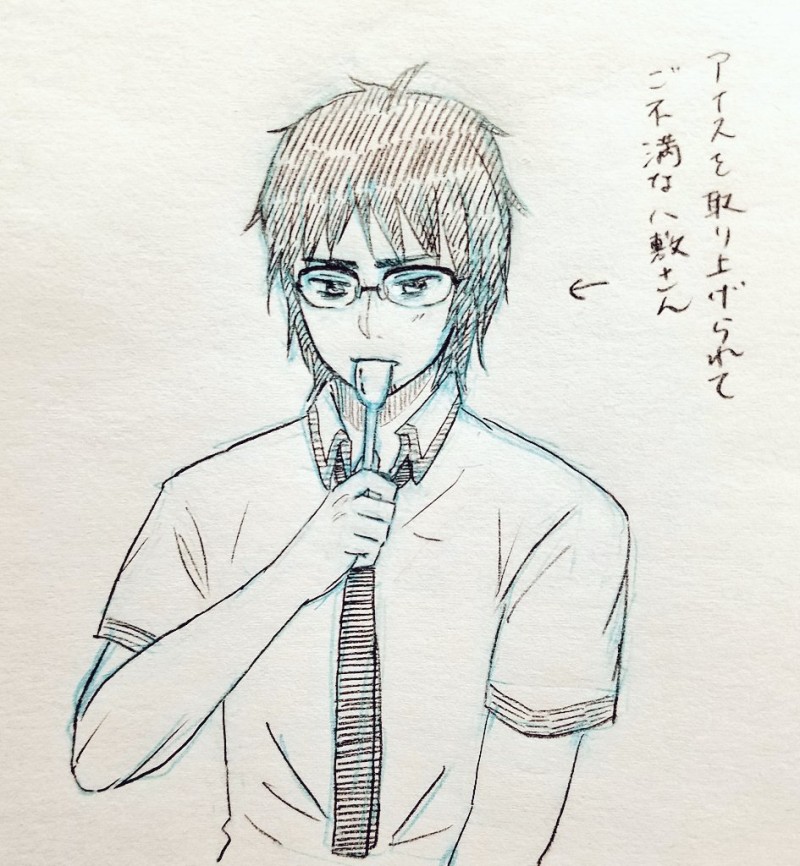 アイスを取り上げられて
ご不満な八敷さん
←